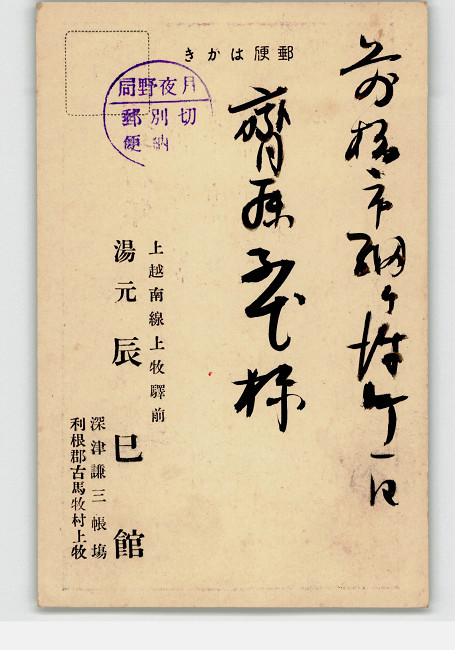 郵便はかき
前橋市細ヶ沢町一
齊藤 様
月夜野局
切
別納
郵便
上越南線上牧驛前
湯元辰巳館
深津謙三帳場
利根郡古馬牧村上牧